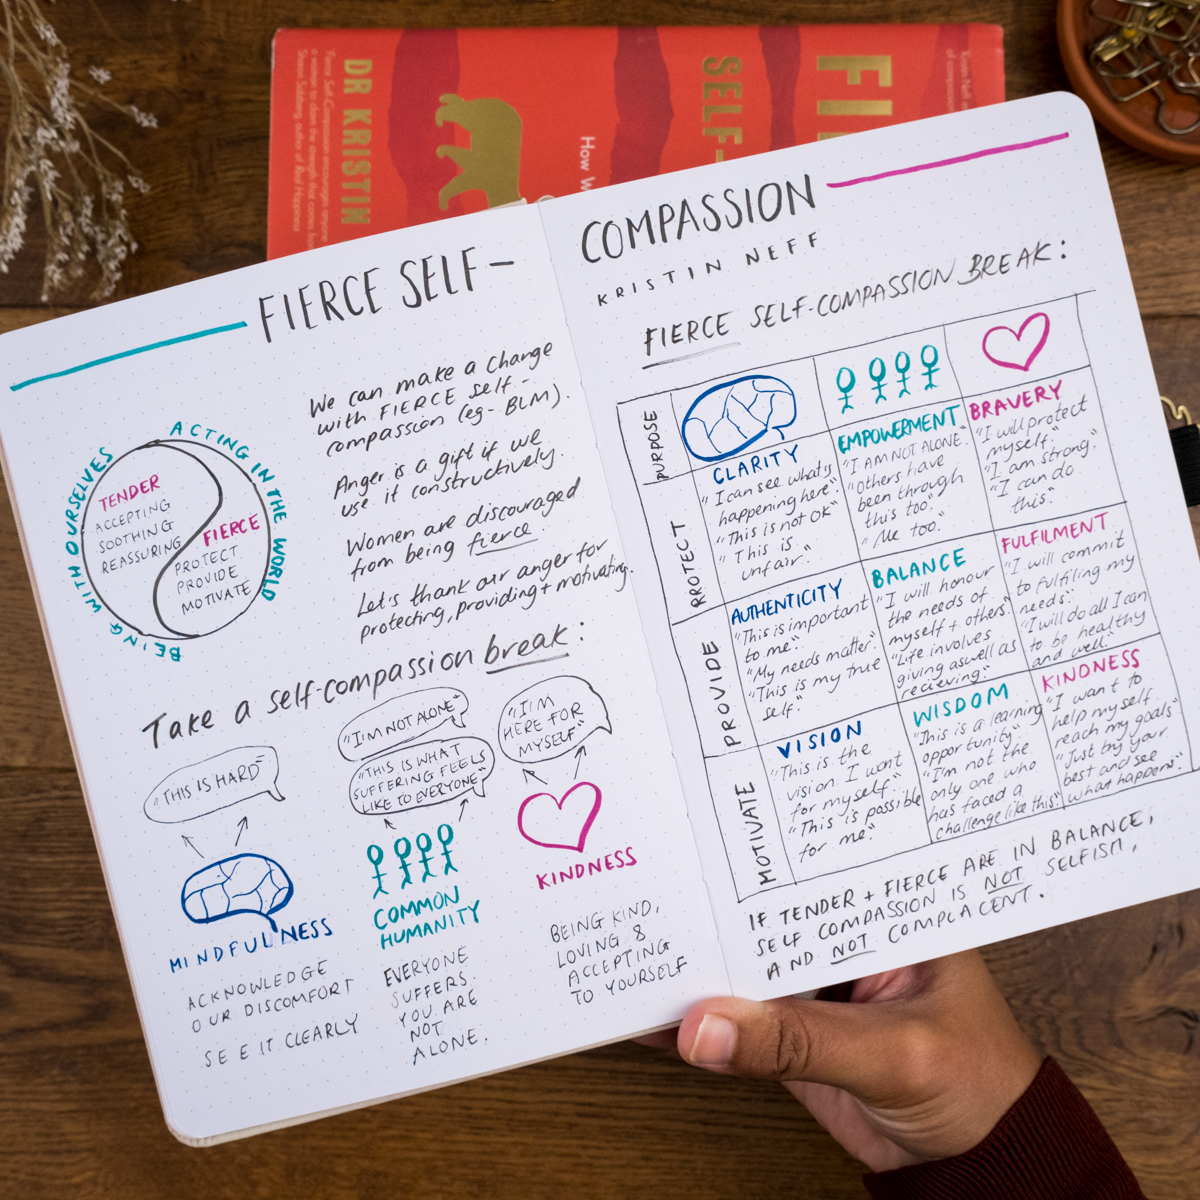 DR KRISTIN
SELF-
FI
How W
FIERCE SELF-
COMPASSION
KRISTIN NEFF
ACTING IN THE WORLD
BEING WITH OURSELVES
TENDER
ACCEPTING
SOOTHING
REASSURING
FIERCE
PROTECT
PROVIDE
MOTIVATE
We can make a change
with FIERCE self-
compassion (eg- BLM).
Anger is a gift if we
use it constructively.
Women are discouraged
from being fierce
Let's thank our anger for
protecting, providing + motivating.
Take a self-compassion break:
"THIS IS HARD"
"I'M NOT ALONE"
"THIS IS WHAT
SUFFERING FEELS
LIKE TO EVERYONE"
"I'M
HERE FOR
MYSELF"
MINDFULNESS
ACKNOWLEDGE
OUR DISCOMFORT
SEE IT CLEARLY
COMMON
HUMANITY
EVERYONE
SUFFERS.
YOU ARE
NOT
ALONE.
KINDNESS
BEING KIND,
LOVING &
ACCEPTING
TO YOURSELF
FIERCE SELF-COMPASSION BREAK:
PURPOSE
PROTECT
CLARITY
"I can see what's
happening here"
"This is not OK"
"This is
unfair."
EMPOWERMENT
"I AM NOT ALONE."
"Others have
been through
this too."
"Me too."
BRAVERY
"I will protect
myself."
"I am strong."
"I can do
this."
PROVIDE
AUTHENTICITY
"This is important
to me."
"My needs matter."
"This is my true
self."
BALANCE
"I will honour
the needs of
myself + others."
"Life involves
giving aswell as
recieving."
FULFILMENT
"I will commit
to fulfiling my
needs."
"I will do all I can
to be healthy
and well."
MOTIVATE
VISION
"This is the
vision I want
for myself."
"This is possible
for me."
WISDOM
"This is a learning
opportunity."
"I'm not the
only one who
has faced a
challenge like this."
KINDNESS
"I want to
help my self
reach my goals"
"Just try your
best and see
what happens."
IF TENDER + FIERCE ARE IN BALANCE,
SELF COMPASSION IS NOT SELFISM,
AND NOT COMPLACENT.